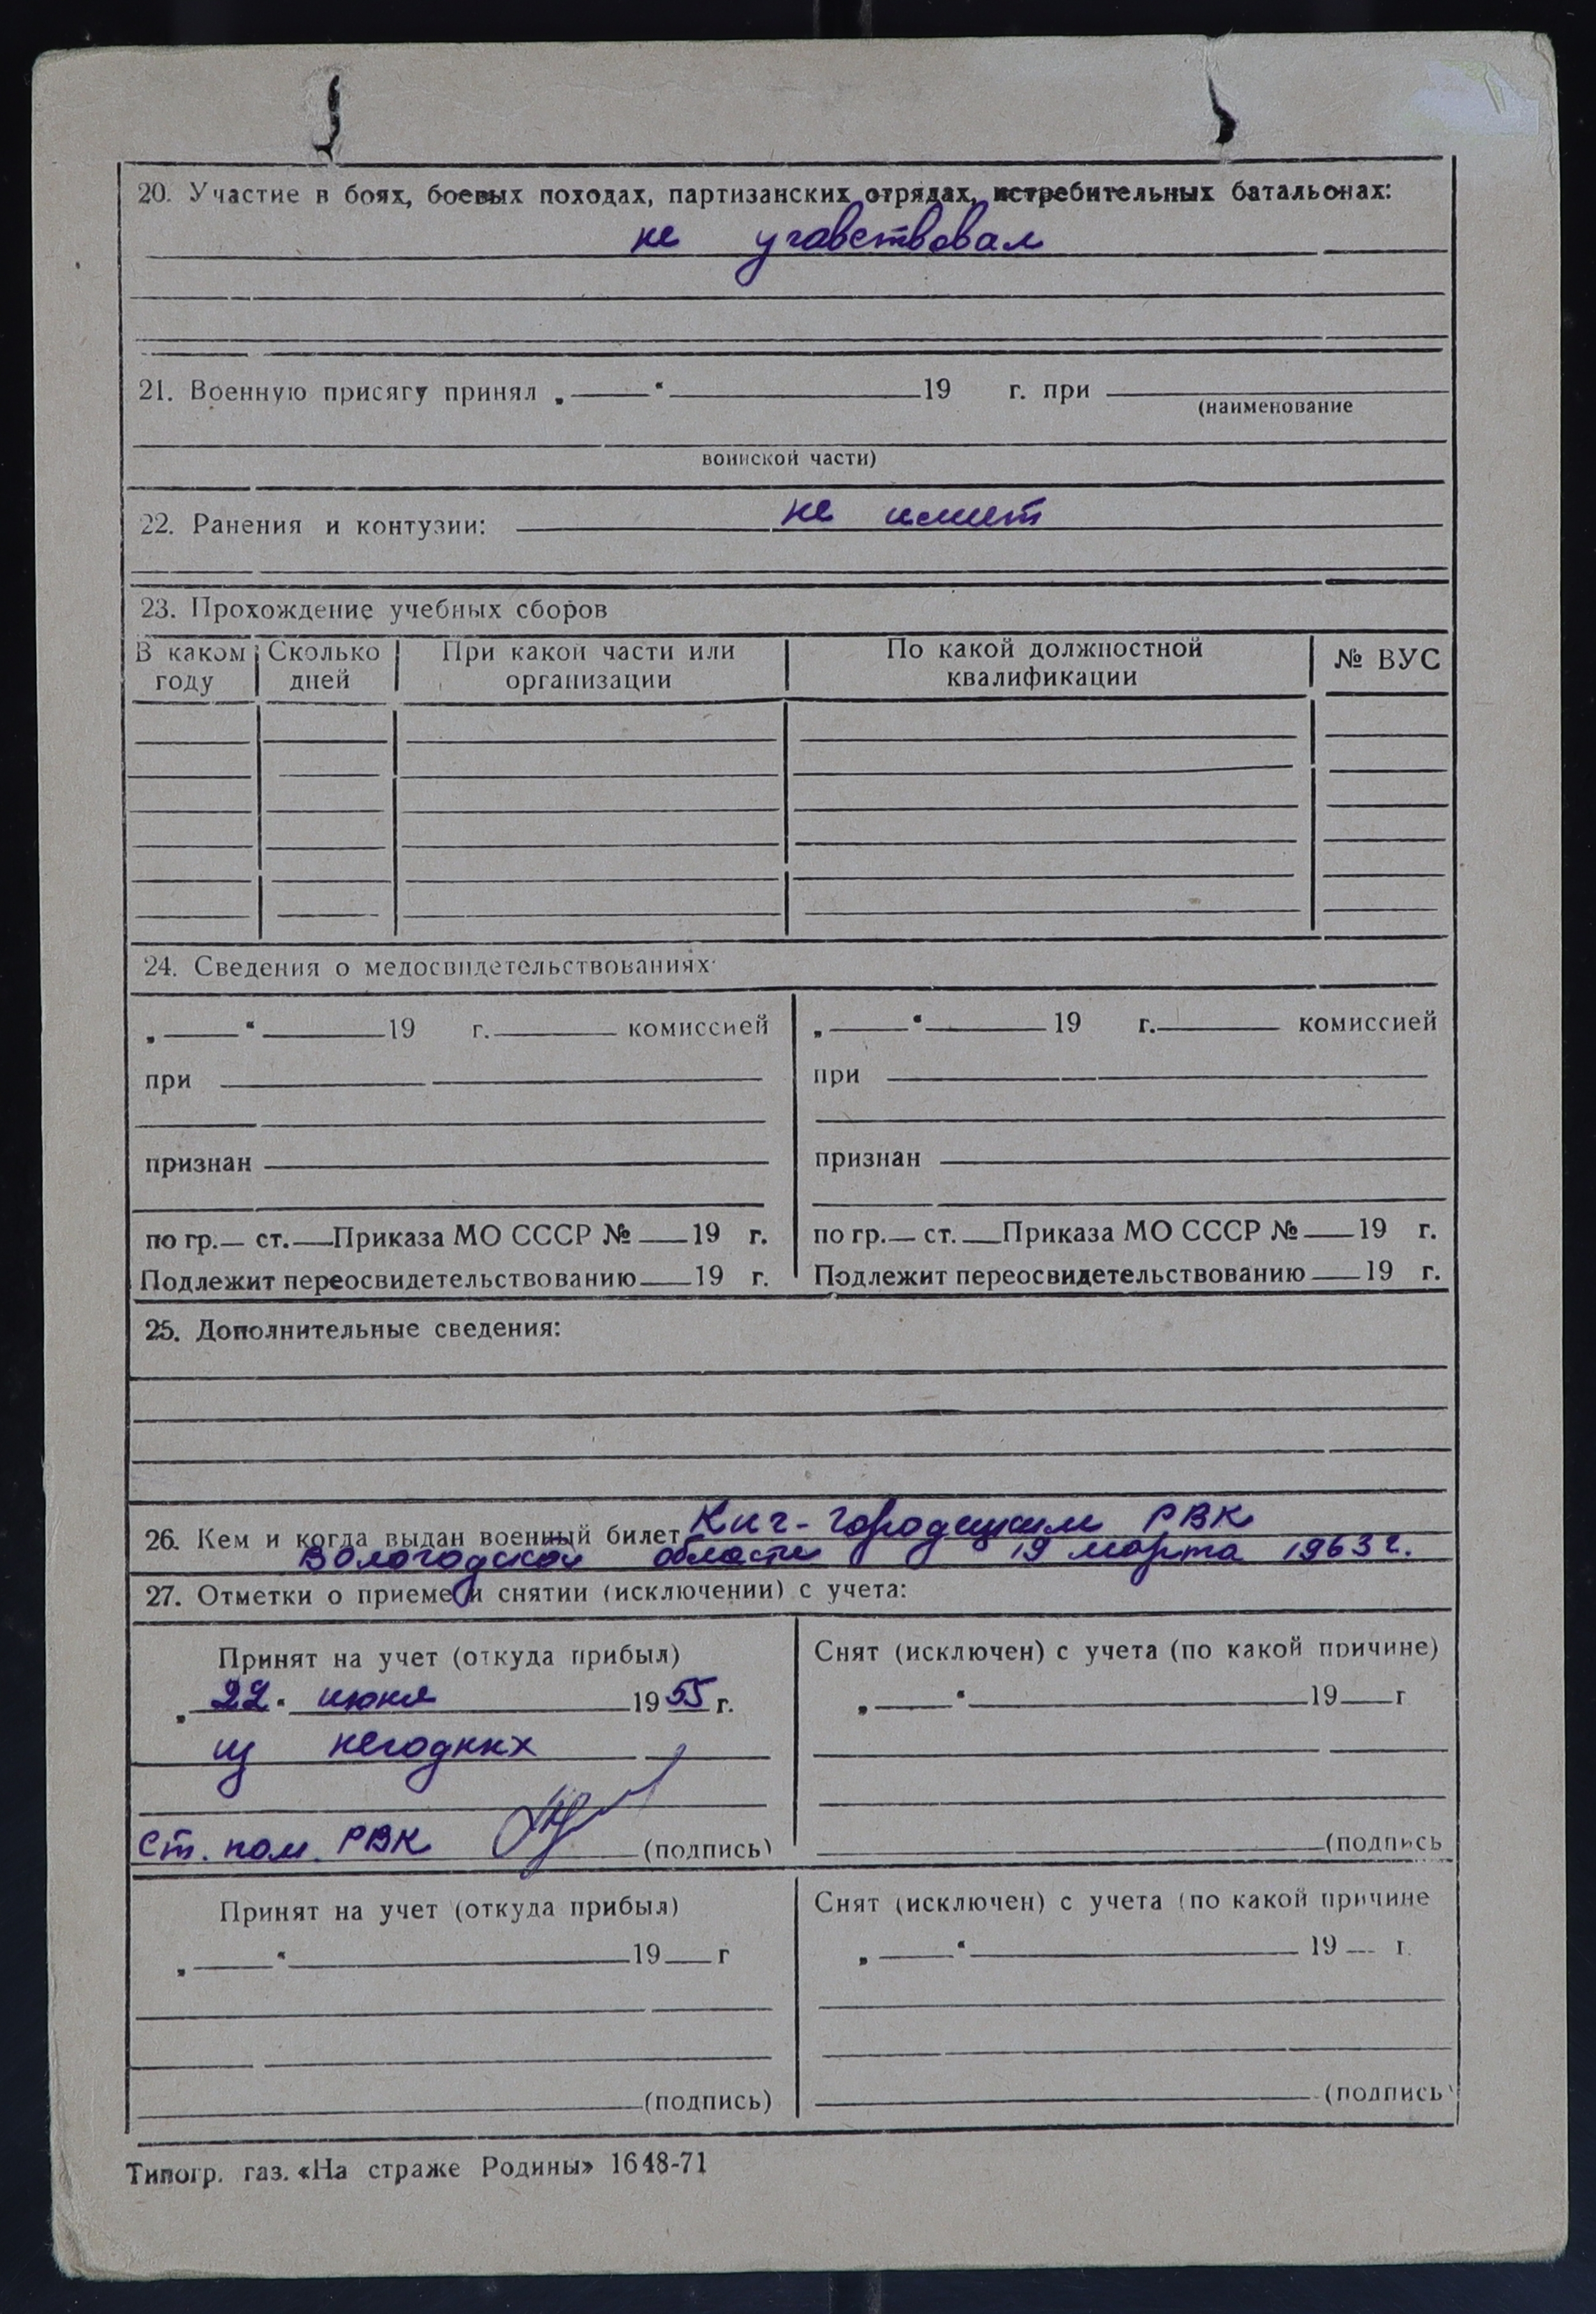 20. Участие в боях, боевых походах, партизанских отрядах, истребительных батальонах:
не участвовал
21. Военную присягу принял „ “ 19 г. при
(наименование
воинской части)
22. Ранения и контузии: не имеет
23. Прохождение учебных сборов
В каком году Сколько дней При какой части или организации По какой должностной квалификации № ВУС
24. Сведения о медосвидетельствованиях
„ “ 19 г. комиссией
при
признан
по гр. ст. Приказа МО СССР № 19 г.
Подлежит переосвидетельствованию 19 г.
„ “ 19 г. комиссией
при
признан
по гр. ст. Приказа МО СССР № 19 г.
Подлежит переосвидетельствованию 19 г.
25. Дополнительные сведения:
26. Кем и когда выдан военный билет Кич-Городецким РВК
Вологодской области 19 марта 1963 г.
27. Отметки о приеме и снятии (исключении) с учета:
Принят на учет (откуда прибыл)
„22“ июня 1955 г.
из негодных
Ст. пом. РВК (подпись)
Снят (исключен) с учета (по какой причине)
„ “ 19 г
(подпись
Принят на учет (откуда прибыл)
„ “ 19 г
(подпись)
Снят (исключен) с учета (по какой причине
„ “ 19 г.
(подпись)
Типогр. газ. «На страже Родины» 1648-71